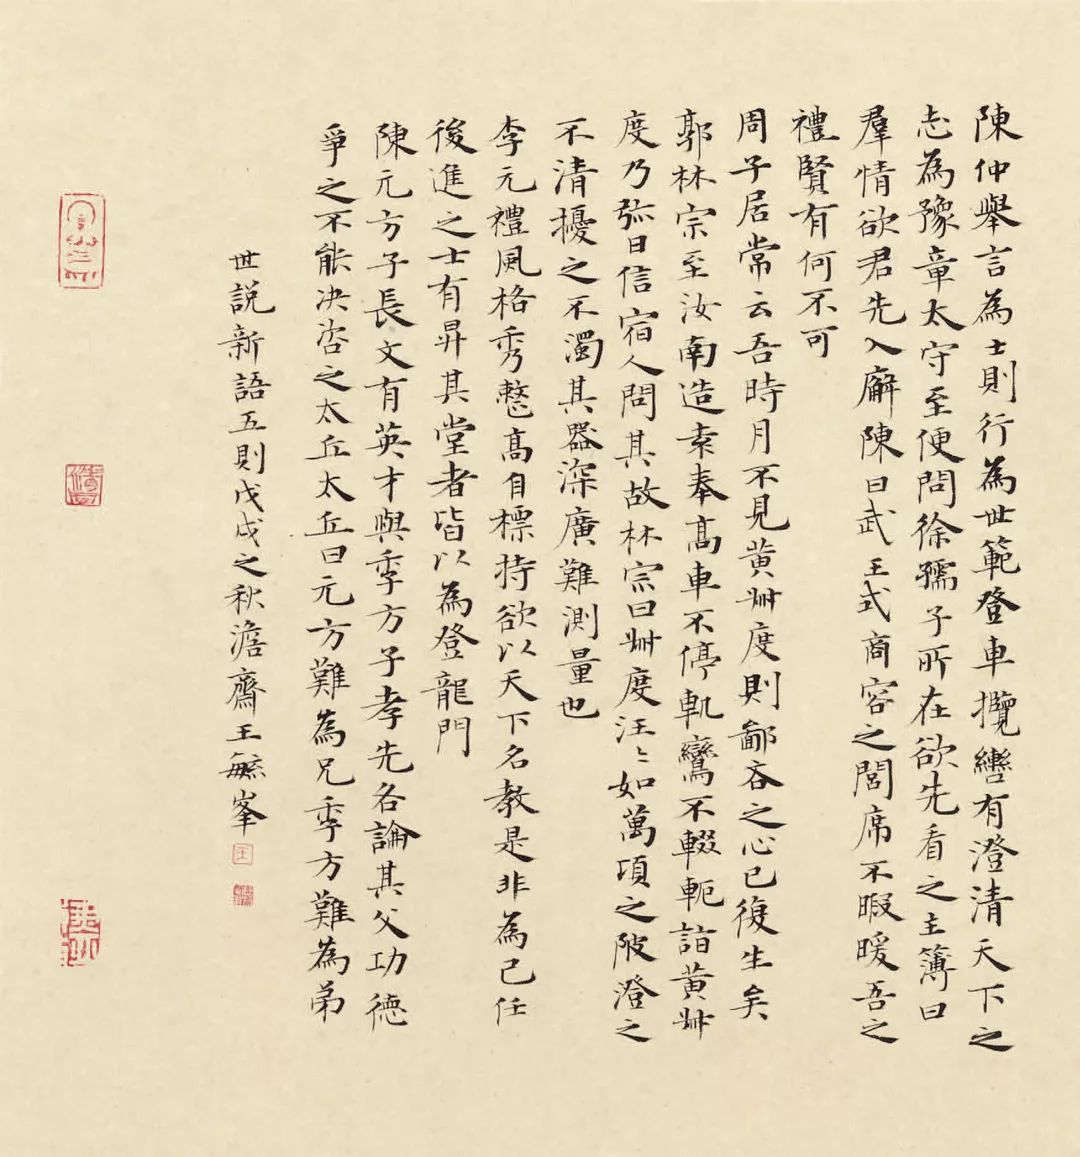 陳仲舉言為士則行為世範登車攬轡有澄清天下之
志為豫章太守至便問徐孺子所在欲先看之主簿曰
羣情欲君先入廨陳曰武王式商容之閭席不暇暖吾之
禮賢有何不可
周子居常云吾時月不見黃䊹度則鄙吝之心已復生矣
郭林宗至汝南造素奉高車不停軌鸞不輟軛詣黃䊹
度乃弥日信宿人問其故林宗曰䊹度汪〻如萬頃之陂澄之
不清擾之不濁其器深廣難測量也
李元禮風格秀整高自標持欲以天下名教是非為己任
後進之士有昇其堂者皆以為登龍門
陳元方子長文有英才與季方子孝先各論其父功德
爭之不能決咨之太丘太丘曰元方難為兄季方難為弟
世說新語五則戊戌之秋澹齋王毓峯